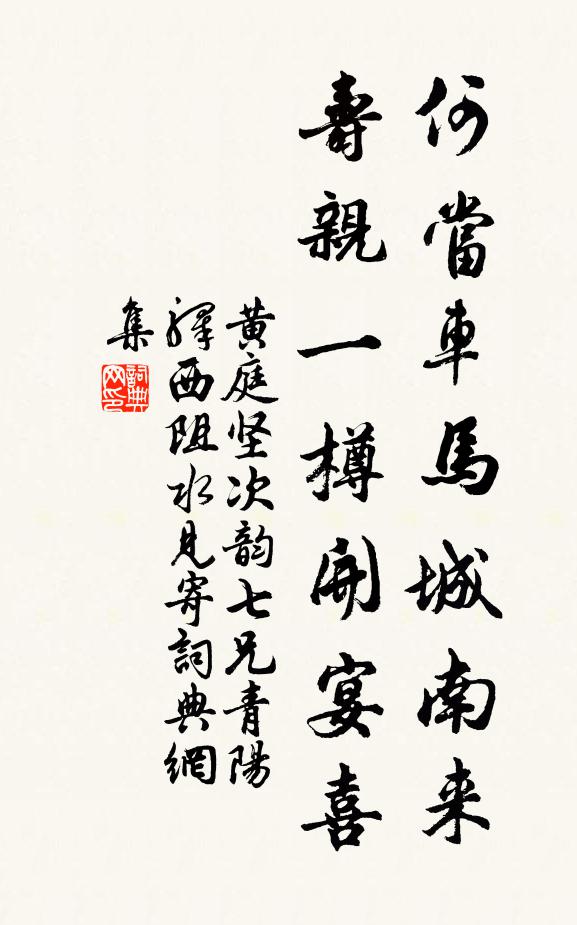 何當車馬城南来
壽親一樽開宴喜
黄庭坚次韵七兄青陽
驛西阻水見寄詞典網
集
詞典网印